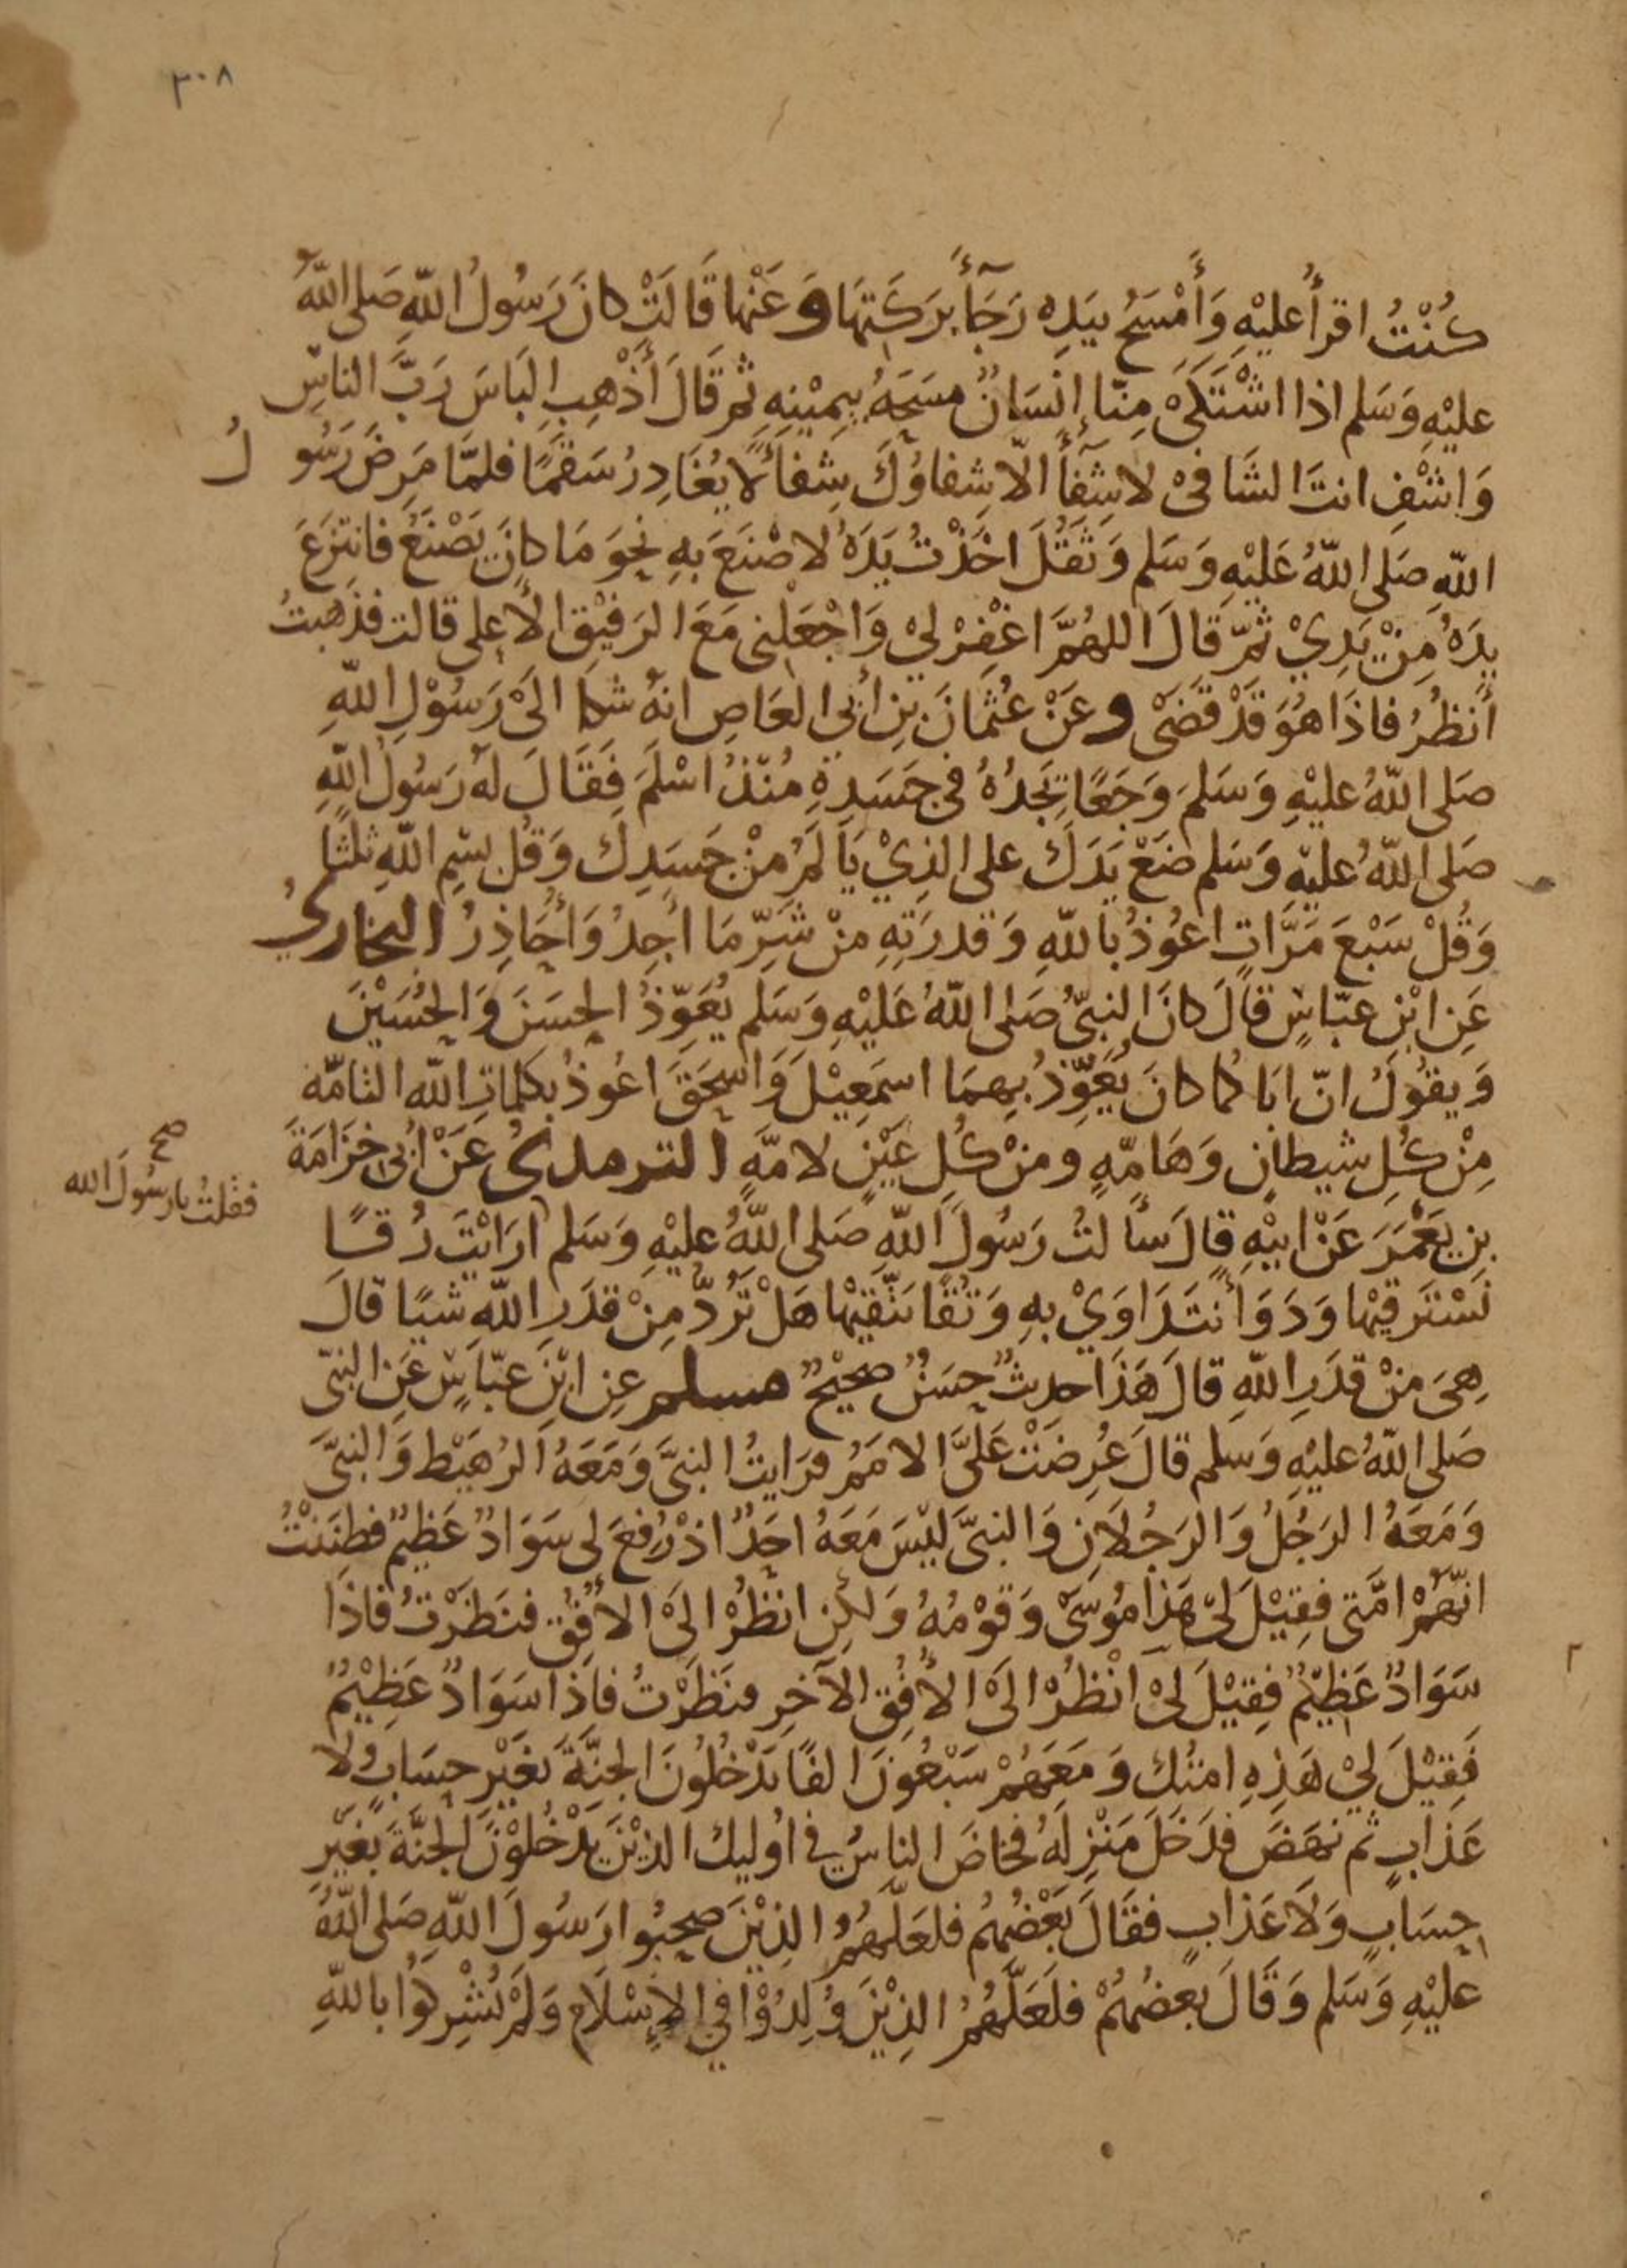 ٣٠٨
كُنْتُ اقرأُ عليْهِ وَأَمْسَحُ بيَدِه رَجَآءً بَرَكَتِهَا وَعَنْها قَالَتْ كانَ رَسُولُ اللّهِ صَلى اللّهُ
عليْهِ وَسَلم اذا اشْتَكَىْ مِنّا إنْسَانٌ مسَحَهُ بيمِيْنِهِ ثمر قَالَ أَذْهِبِ البَاسَ رَبَّ الناسِ
وَاشْفِ انتَ الشَافىْ لا شِفآءَ الّا شِفاؤُكَ شِفاًءً لا يُغَادِرُ سَقَمًا فلمَّا مَرِضَ رَسُولُ
اللّهِ صَلى اللّهُ عَلَيْهِ وَسَلم وَثَقُلَ اخَذْتُ يَدَهُ لاصْنَعَ بهِ نحوَ مَا كانَ يَصْنَعُ فانتزَعَ
يدَهُ مِنْ يَدِيْ ثمّ قَالَ اللهُمَّ اغْفِرْ ليْ وَاجْعَلنى مَعَ الرَفيْقِ الأعلى قالت فذهبتُ
أنظُرُ فاذَا هُوَ قَدْ قَضَىْ وعَنْ عُثمَانَ بنِ أبى العَاصِ انهُ شكا الىْ رَسُوْلِ اللّهِ
صَلى اللّهُ عليْهِ وَسَلمَ وَجَعًا يَجدُهُ فى جَسَدِهِ مُنذُ اسْلَمَ فَقَالَ لهُ رَسُولُ اللّهِ
صَلى اللّهُ عليْهِ وَسَلم ضَعْ يَدَكَ على الذِيْ يَألَمُ مِنْ جَسَدِك وَقُلْ بسْمِ اللّهِ ثلثًا
وَقُلْ سَبْعَ مَرَّاتٍ اعُوذُ باللّهِ وَقدرَتِهِ مِنْ شَرِّ مَا أَجِدُ وَأُحَاذِرُ البخارىُ
عَنِ ابْنِ عبّاسٍ قالَ كانَ النبىُّ صَلى اللّهُ عَلَيْهِ وَسَلم يُعَوِّذُ الحسَنَ وَالحُسَيْنَ
وَيقُولُ انّ ابَاكما كانَ يُعَوِّذُ بِهِمَا اسمَعِيْلَ وَاسحَقَ اعُوذُ بكلماتِ اللّه التامّه
مِنْ كُلِ شيطانٍ وَهَامّهٍ ومنْ كُلِ عَيْنٍ لامّهٍ الترمدىُ عَنْ ابى خزَامَةَ
بنِ يَعْمَرَ عَنْ ابيْهِ قالَ سأ لتُ رَسُولَ اللّهِ صَلى اللّهُ عليْهِ وَسَلم ارَايْتَ رُقًا
فقلتُ يارسُولَ الله
صح
نَسْتَرقيْها وَدَوَاءً نتَدَاوَيْ بهِ وَتُقًا نتّقيْها هَلْ تَرُدُّ مِنْ قدَرِ اللّهِ شيًا قالَ
هِىَ مِنْ قدَرِ اللّهِ قالَ هَذَا حديثٌ حسَنٌ صحيْحٌ مسلم عنِ ابْنِ عبّاسٍ عَنِ النبىّ
صَلى اللّهُ عليْهِ وَسلم قالَ عُرِضَتْ عَلَىَّ الامَمُ فرَايتُ النبىَّ وَمَعَهُ الرُهَيْط وَالنبىَّ
وَمَعَهُ الرَجُلُ وَالرَجُلانِ وَالنبىَّ ليْسَ مَعَهُ احَدٌ اذْ رُفِعَ لى سَوَادٌ عَظيْمٌ فظنَنْتُ
انّهُمْ امَّتى فقِيْلَ لىْ هَذا مُوسَىْ وَقوْمُهُ وَلكِنِ انظُرْ الىَ الأفُقِ فنَظَرْتُ فاذَا
سَوَادٌ عَظيْمٌ فِقيْلَ لىْ انْظُرْ الىَ الأفُقِ الآخرِ فنَظَرْتُ فاذَا سَوَادٌ عَظِيْمٌ
فَقِيْلَ لىْ هَذِهِ امتُك وَمَعَهُمْ سَبْعُونَ الفًا يَدْخُلُونَ الجنّةَ بغَيْرِ حِسَابٍ وَلا
عَذابٍ ثم نهَضَ فدَخَلَ مَنْزِلهُ فخاضَ الناسُ فى اوُليك الذيْنَ يَدْخُلوْنَ الجنّةَ بغيْرِ
حِسَابٍ وَلَا عَذابٍ فقَالَ بَعْضُهُم فلعَلّهُمُ الذِيْنَ صحِبُوا رَسُولَ اللّهِ صَلى اللّهُ
عليْهِ وَسَلم وَقَالَ بعضُهُمْ فلعَلّهُمُ الذِيْنَ وُلِدُوْا فى الإسْلَامِ وَلَمْ يُشْرِكُوا باللّهِ